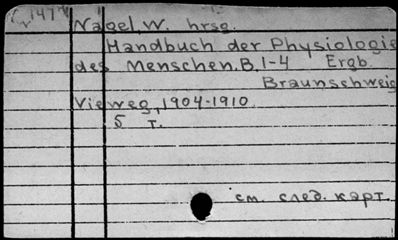 147
Nagel, W. hrsg.
Handbuch der Physiologie
des Menschen. B. 1-4 Ergb.
Braunschweig
Vieweg, 1904-1910
5 т.
см. след. карт.